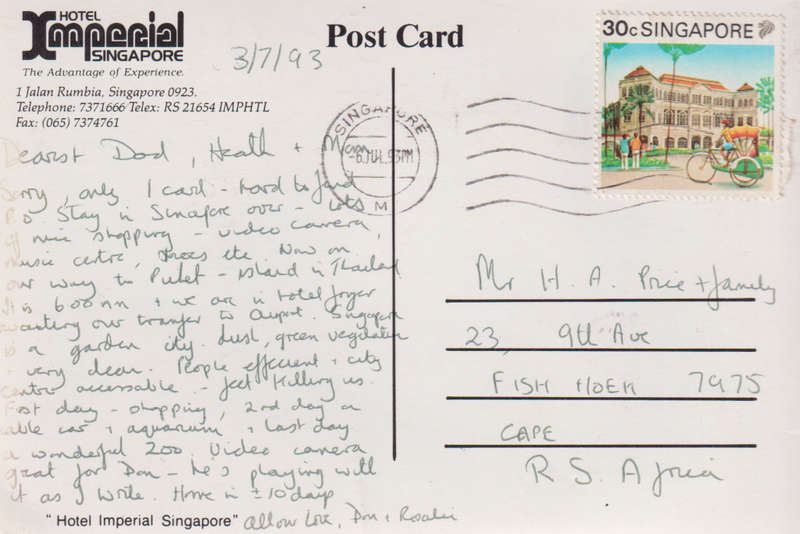 HOTEL
Imperial
SINGAPORE
The Advantage of Experience.
1 Jalan Rumbia, Singapore 0923.
Telephone: 7371666 Telex: RS 21654 IMPHTL
Fax: (065) 7374761
3/7/93
Post Card
30c SINGAPORE
SINGAPORE
-6 JUL 93 PM
M
Dearest Dad, Heath + Mom
Sorry, only 1 card - hard to find
P.O Stay in Sincapore over - lots
of nice shopping - video camera,
music centre, dresses etc. Now on
our way to Puket - island in Thailand
It is 6 00 and we are in hotel foyer
waiting our transfer to airport. Singapore
is a garden city. Lush, green vegetation
+ very clean. People efficient + city
centre accessable - feet killing us.
First day - shopping, 2nd day on
cable car + aquarium + last day
a wonderful zoo. Video camera
great for Don - he's playing with
it as I write. Home in ± 10 days
"Hotel Imperial Singapore" all our love, Don + Rosalie
Mr H. A. Price + family
23, 9th Ave
FISH HOEK 7975
CAPE
R S. Africa